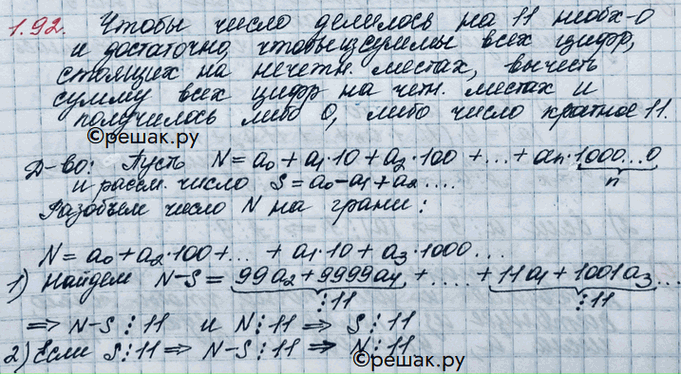 1.92. Чтобы число делилось на 11 необх-о
и достаточно, чтобы из суммы всех цифр,
стоящих на нечетн. местах, вычесть
сумму всех цифр на чет. местах и
получилось либо 0, либо число кратное 11.
©решак.ру
Д-во: Пусть N = a₀ + a₁·10 + a₂·100 + ... + aₙ·1000...0
n
и рассм. число S = a₀ - a₁ + a₂ ....
Разобьем число N на грани:
N = a₀ + a₂·100 + ... + a₁·10 + a₃·1000...
1) Найдем N-S = 99a₂ + 9999a₄ + .... + 11a₁ + 1001a₃...
⋮11 ⋮11
⇒ N-S ⋮ 11 и N ⋮ 11 ⇒ S ⋮ 11
2) Если S ⋮ 11 ⇒ N-S ⋮ 11 ⇒ N ⋮ 11
©решак.ру